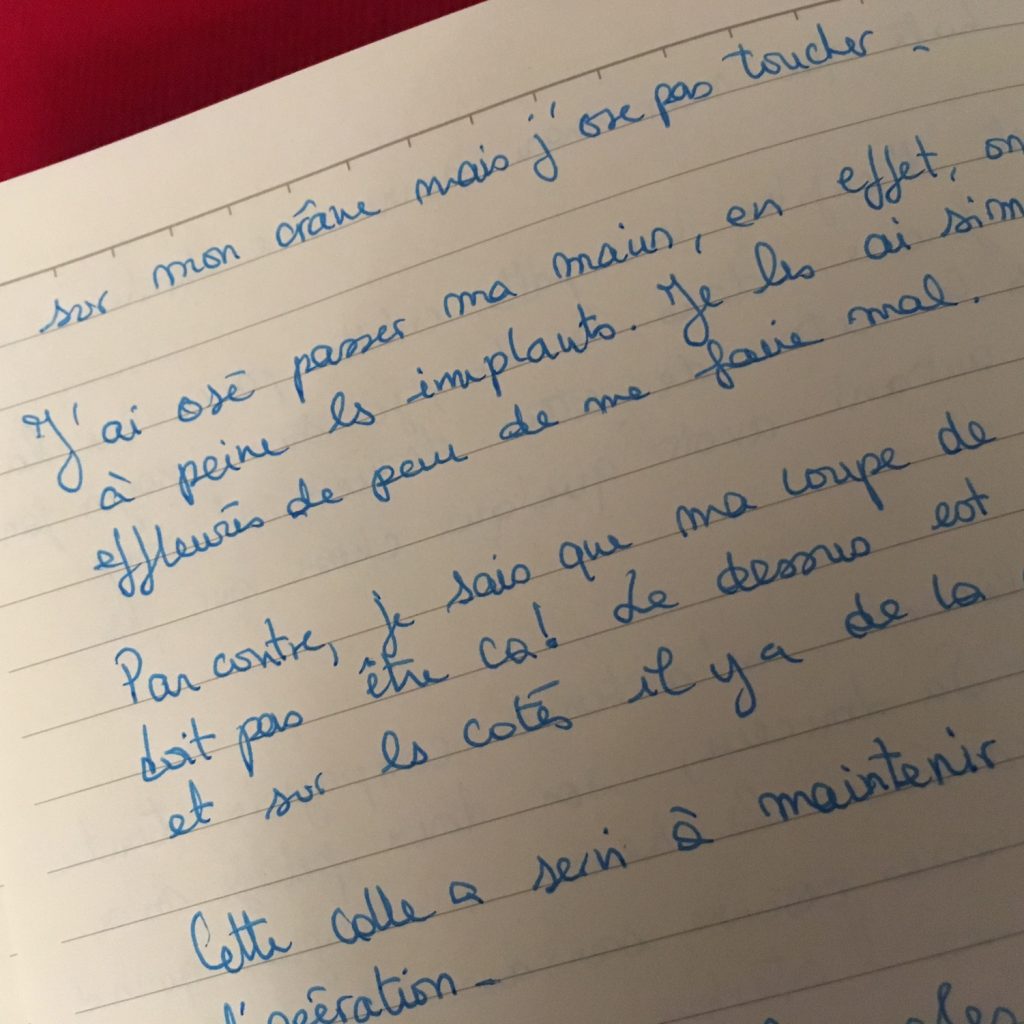 sur mon crâne mais j'ose pas toucher -
J'ai osé passer ma main, en effet, on
à peine les implants. Je les ai sim
effleurés de peur de me faire mal.
Par contre, je sais que ma coupe de
doit pas être ca! Le dessus est
et sur les cotés il y a de la
Cette colle a servi à maintenir
l'opération -